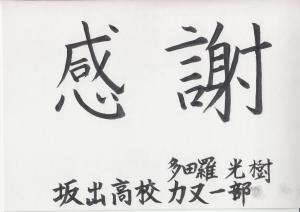 感謝
多田羅 光樹
坂出高校 カヌー部